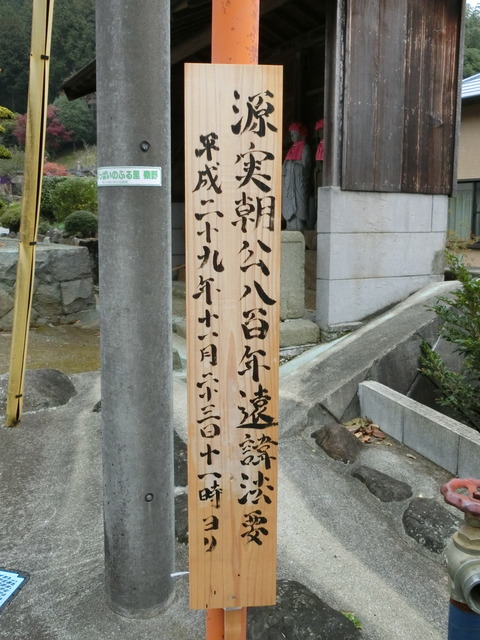 源実朝公八百年遠諱法要
平成二十九年十一月二十三日十一時ヨリ
っぱいのふる里 秦野